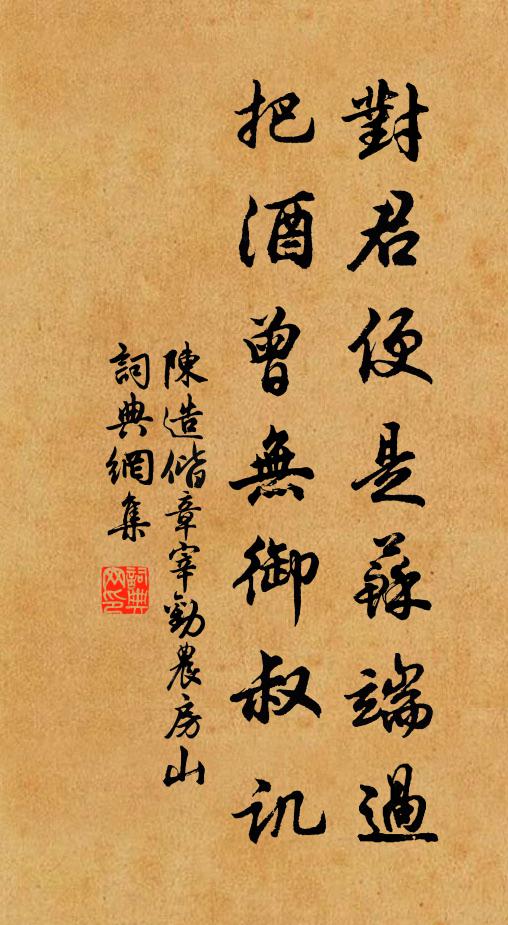 對君便是蘇端過
把酒曾無御叔讥
陳造偕章宰勸農房山
詞典網集
詞典网印